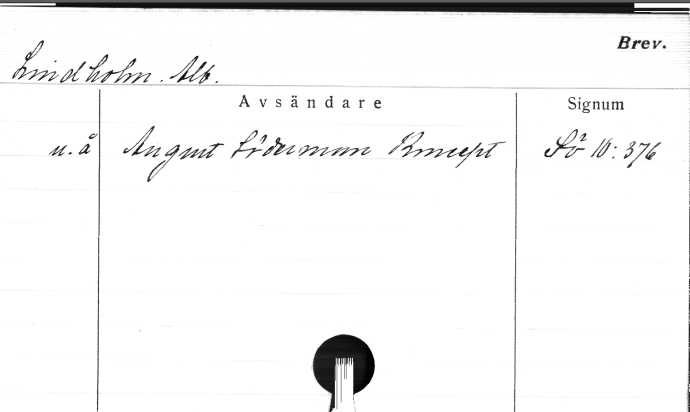 Brev.
Lindholm. Alb.
Avsändare Signum
u. å August Söderman Koncept Sö² 10: 376